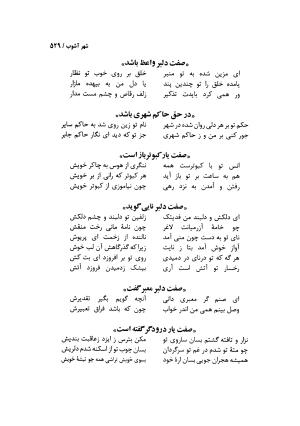 شهر آشوب / ۵۲۹
*صفت دلبر واعظ باشد*
ای مزین شده به تو منبر
خلق بر روی خوب تو نظار
پامده خلق را تو چندین پند
یا دل من به بیهده مازار
ور همی کرد بایدت تذکیر
زلف رقاص و چشم مست مدار
*در حق حاکم شهری باشد*
حکم تو بر هر دلی روان شده در شهر
نام تو زین روی شد به حاکم سایر
جور کنی بر من و ز حاکم شهری
جز تو که دید ای نگار حاکم جابر
*صفت یار کبوترباز است*
انس تو با کبوترست همه
ننگری از هوس به چاکر خویش
هم به ساعت بر تو باز آید
هر کبوتر که رانی از بر خویش
رفتن و آمدن به نزد رهی
چون نیاموزی از کبوتر خویش
*صفت دلبر نایی گوید*
ای دلکش و دلبند من قدیتک
زلفین تو دلبند و چشم دلکش
چو خامهٔ آزرمیانت لاغر
چون نامهٔ مانی رخت منقش
نای تو به دست چون منی آمد
نالنده از زخمت ای پریوش
آواز خوش آمد بنا ز نایت
زیرا که گذرگاهش آن لب خوش
هر گه که تو درنای در دمیدی
روی تو بر افروزد ای بت کش
رخسار تو آتش است آری
بیشک زدمیدن فروزد آتش
*صفت دلبر معبر گفت*
ای صنم گر معبری دانی
آنچه گویم بگیر تقدیرش
وصل بینم همی من اندر خواب
چون که باشد فراق تعبیرش
*صفت یار درودگر گفته است*
نزار و تافته گشتم بسان ساروی تو
مکن بترس ز ایزد زعاقبت بندیش
چو متهٔ تو شدم در غم تو سرگردان
بسان چوب تو از اسکنه شدم دلریش
همیشه هجران جویی بسان ارهٔ خود
بسوی خویش تراشی همه چو تیشهٔ خویش